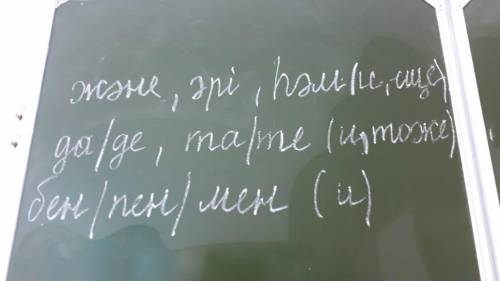 және, әрі, һәм (и, еще)
да/де, та/те (и, тоже)
бен/пен/мен (и)